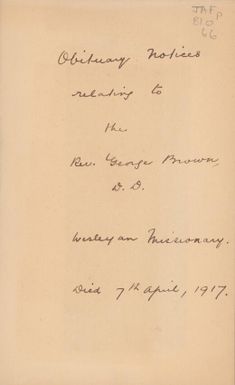 JAFp
BIO
66
Obituary Notices
relating to
the
Rev. George Brown,
D. D.
Wesleyan Missionary.
Died 7th April, 1917.